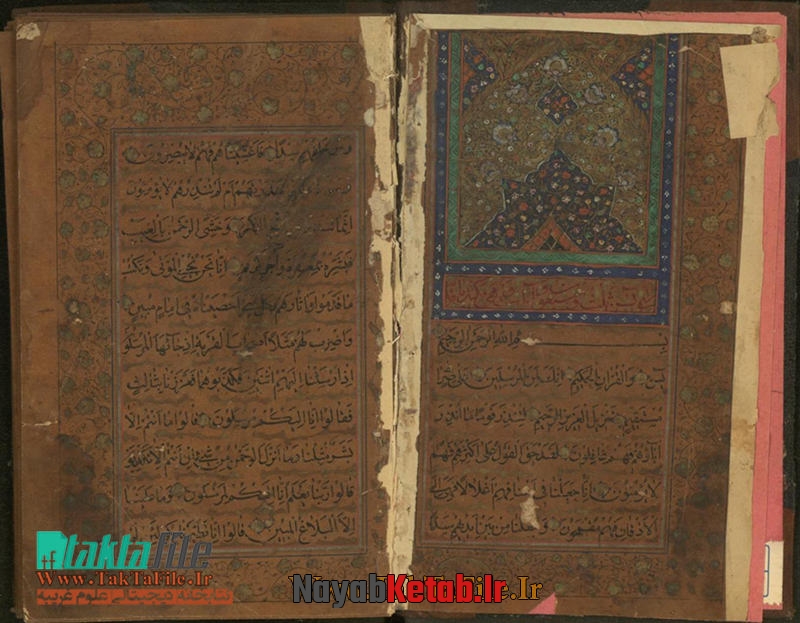 بسم الله الرحمن الرحيم
يس والقرآن الحكيم انك لمن المرسلين على صراط
مستقيم تنزيل العزيز الرحيم لتنذر قوما ما انذر
اباؤهم فهم غافلون لقد حق القول على اكثرهم فهم
لا يؤمنون انا جعلنا في اعناقهم اغلالا فهي الى
الاذقان فهم مقمحون وجعلنا من بين ايديهم سدا
ومن خلفهم سدا فاغشيناهم فهم لا يبصرون
ءانذرتهم ام لم تنذرهم لا يؤمنون
انما الذكر وخشي الرحمن بالغيب
فبشره بمغفرة واجر كريم انا نحن نحيي الموتى ونكتب
ما قدموا واثارهم وكل شيء احصيناه في امام مبين
واضرب لهم مثلا اصحاب القرية اذ جاءها المرسلو
اذ ارسلنا اليهم اثنين فكذبوهما فعززنا بثالث
فقالوا انا اليكم مرسلون قالوا ما انتم الا
بشر مثلنا وما انزل الرحمن من شيء ان انتم الا تكذبو
قالوا ربنا يعلم انا اليكم لمرسلون وما علينا
الا البلاغ المبين قالوا انا تطيرنا بكم
taktafile
Www.TakTaFile.Ir
کتابخانه دیجیتالی علوم غریبه
NayabKetab.Ir